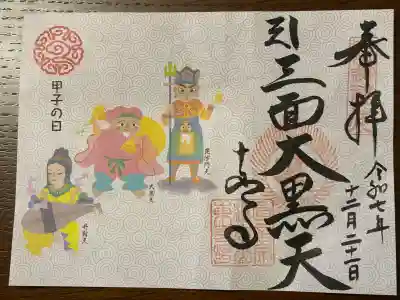 奉拝
令和七年
十二月二十一日
三面大黒天
甲子の日
毘沙門天
大黒天
弁財天